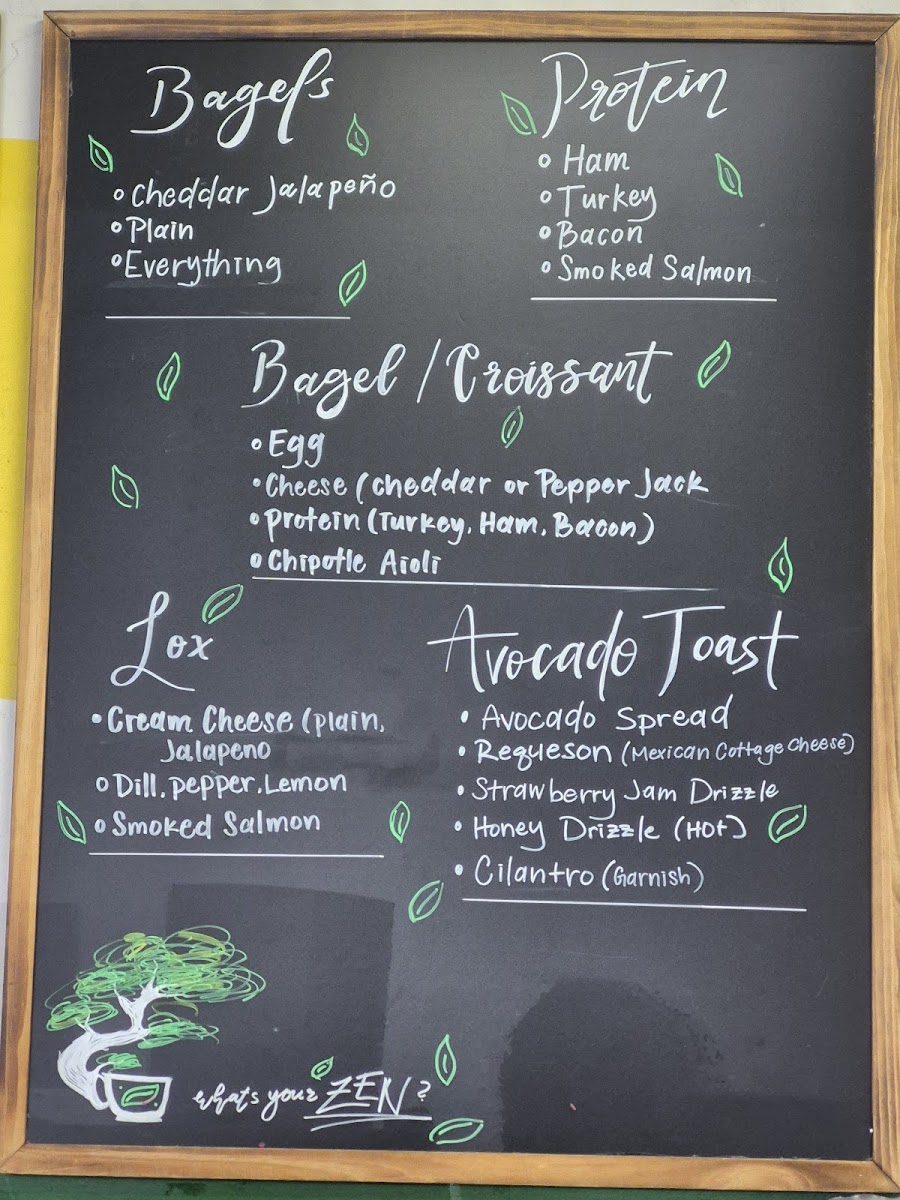 Bagels
Cheddar Jalapeño
Plain
Everything
Protein
Ham
Turkey
Bacon
Smoked Salmon
Bagel / Croissant
Egg
Cheese (cheddar or Pepper Jack
Protein (Turkey, Ham, Bacon)
Chipotle Aioli
Lox
Cream Cheese (plain,
Jalapeno
Dill, pepper, Lemon
Smoked Salmon
Avocado Toast
Avocado Spread
Requeson (Mexican Cottage Cheese)
Strawberry Jam Drizzle
Honey Drizzle (Hot)
Cilantro (Garnish)
what's your ZEN?